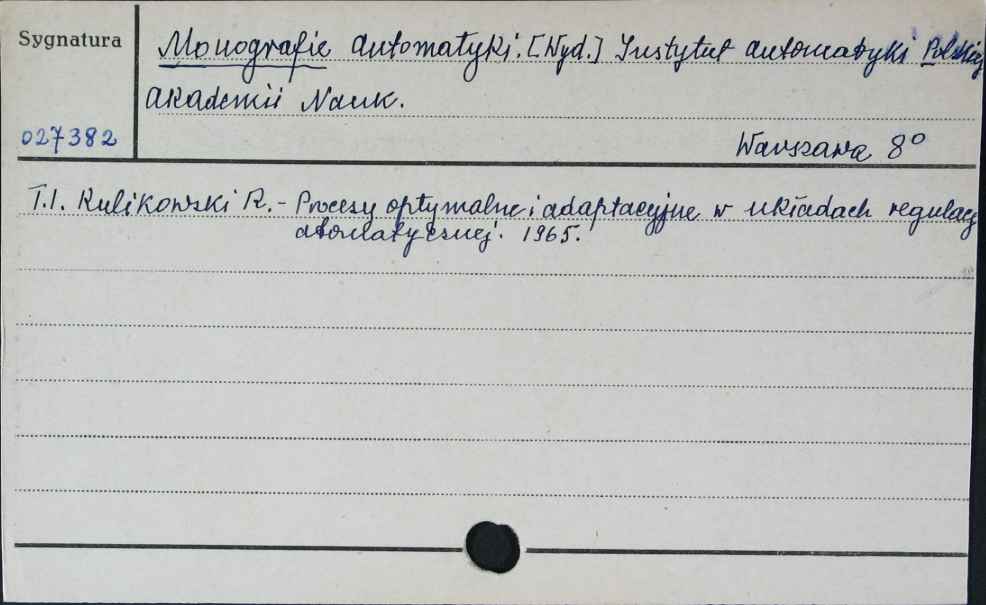 Sygnatura
Monografie automatyki. [Wyd.] Instytut automatyki Polskiej
akademii Nauk.
027382
Warszawa 8°
T.1. Kulikowski R. - Procesy optymalne i adaptacyjne w układach regulacji
automatycznej. 1965.